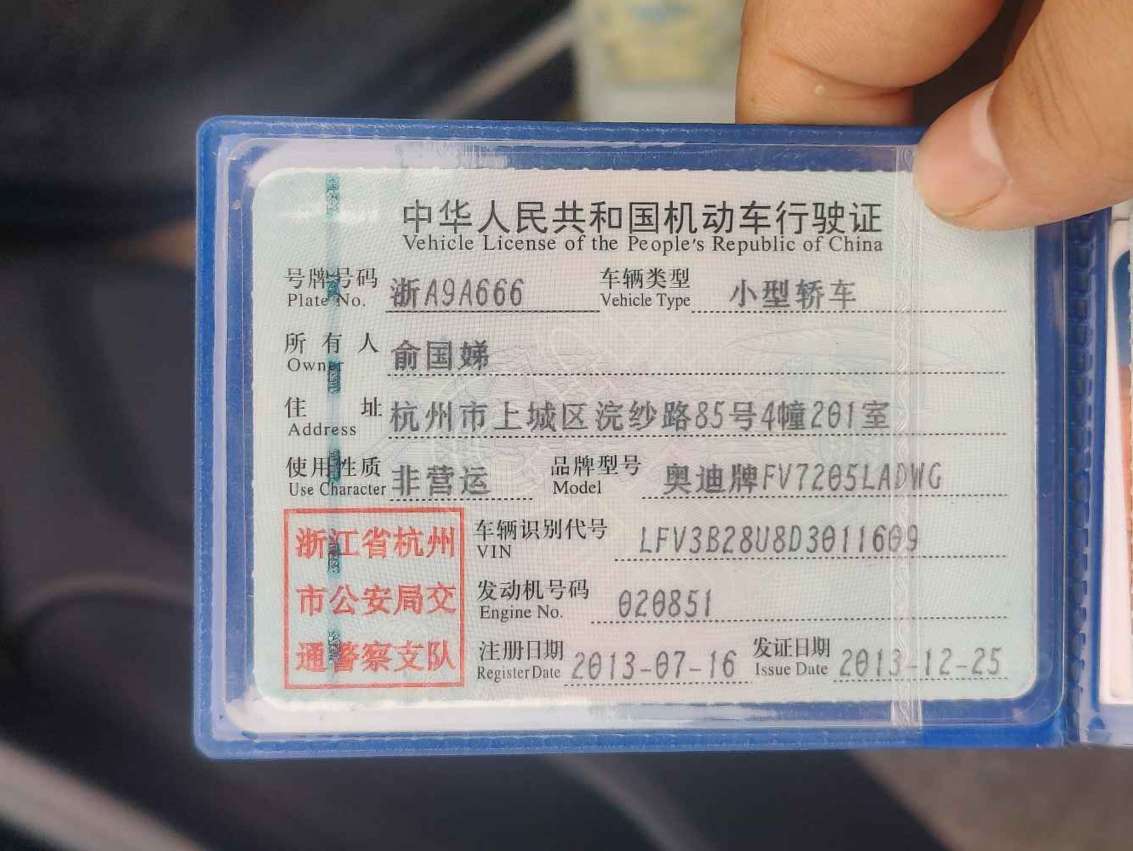 中华人民共和国机动车行驶证
Vehicle License of the People's Republic of China
号牌号码 浙A9A666 车辆类型 小型轿车
Plate No. Vehicle Type
所有人 俞国娣
Owner
住址 杭州市上城区浣纱路85号4幢201室
Address
使用性质 非营运 品牌型号 奥迪牌FV7205LADWG
Use Character Model
浙江省杭州
市公安局交
通警察支队
车辆识别代号 LFV3B28U8D3011609
VIN
发动机号码 020851
Engine No.
注册日期 2013-07-16 发证日期 2013-12-25
Register Date Issue Date